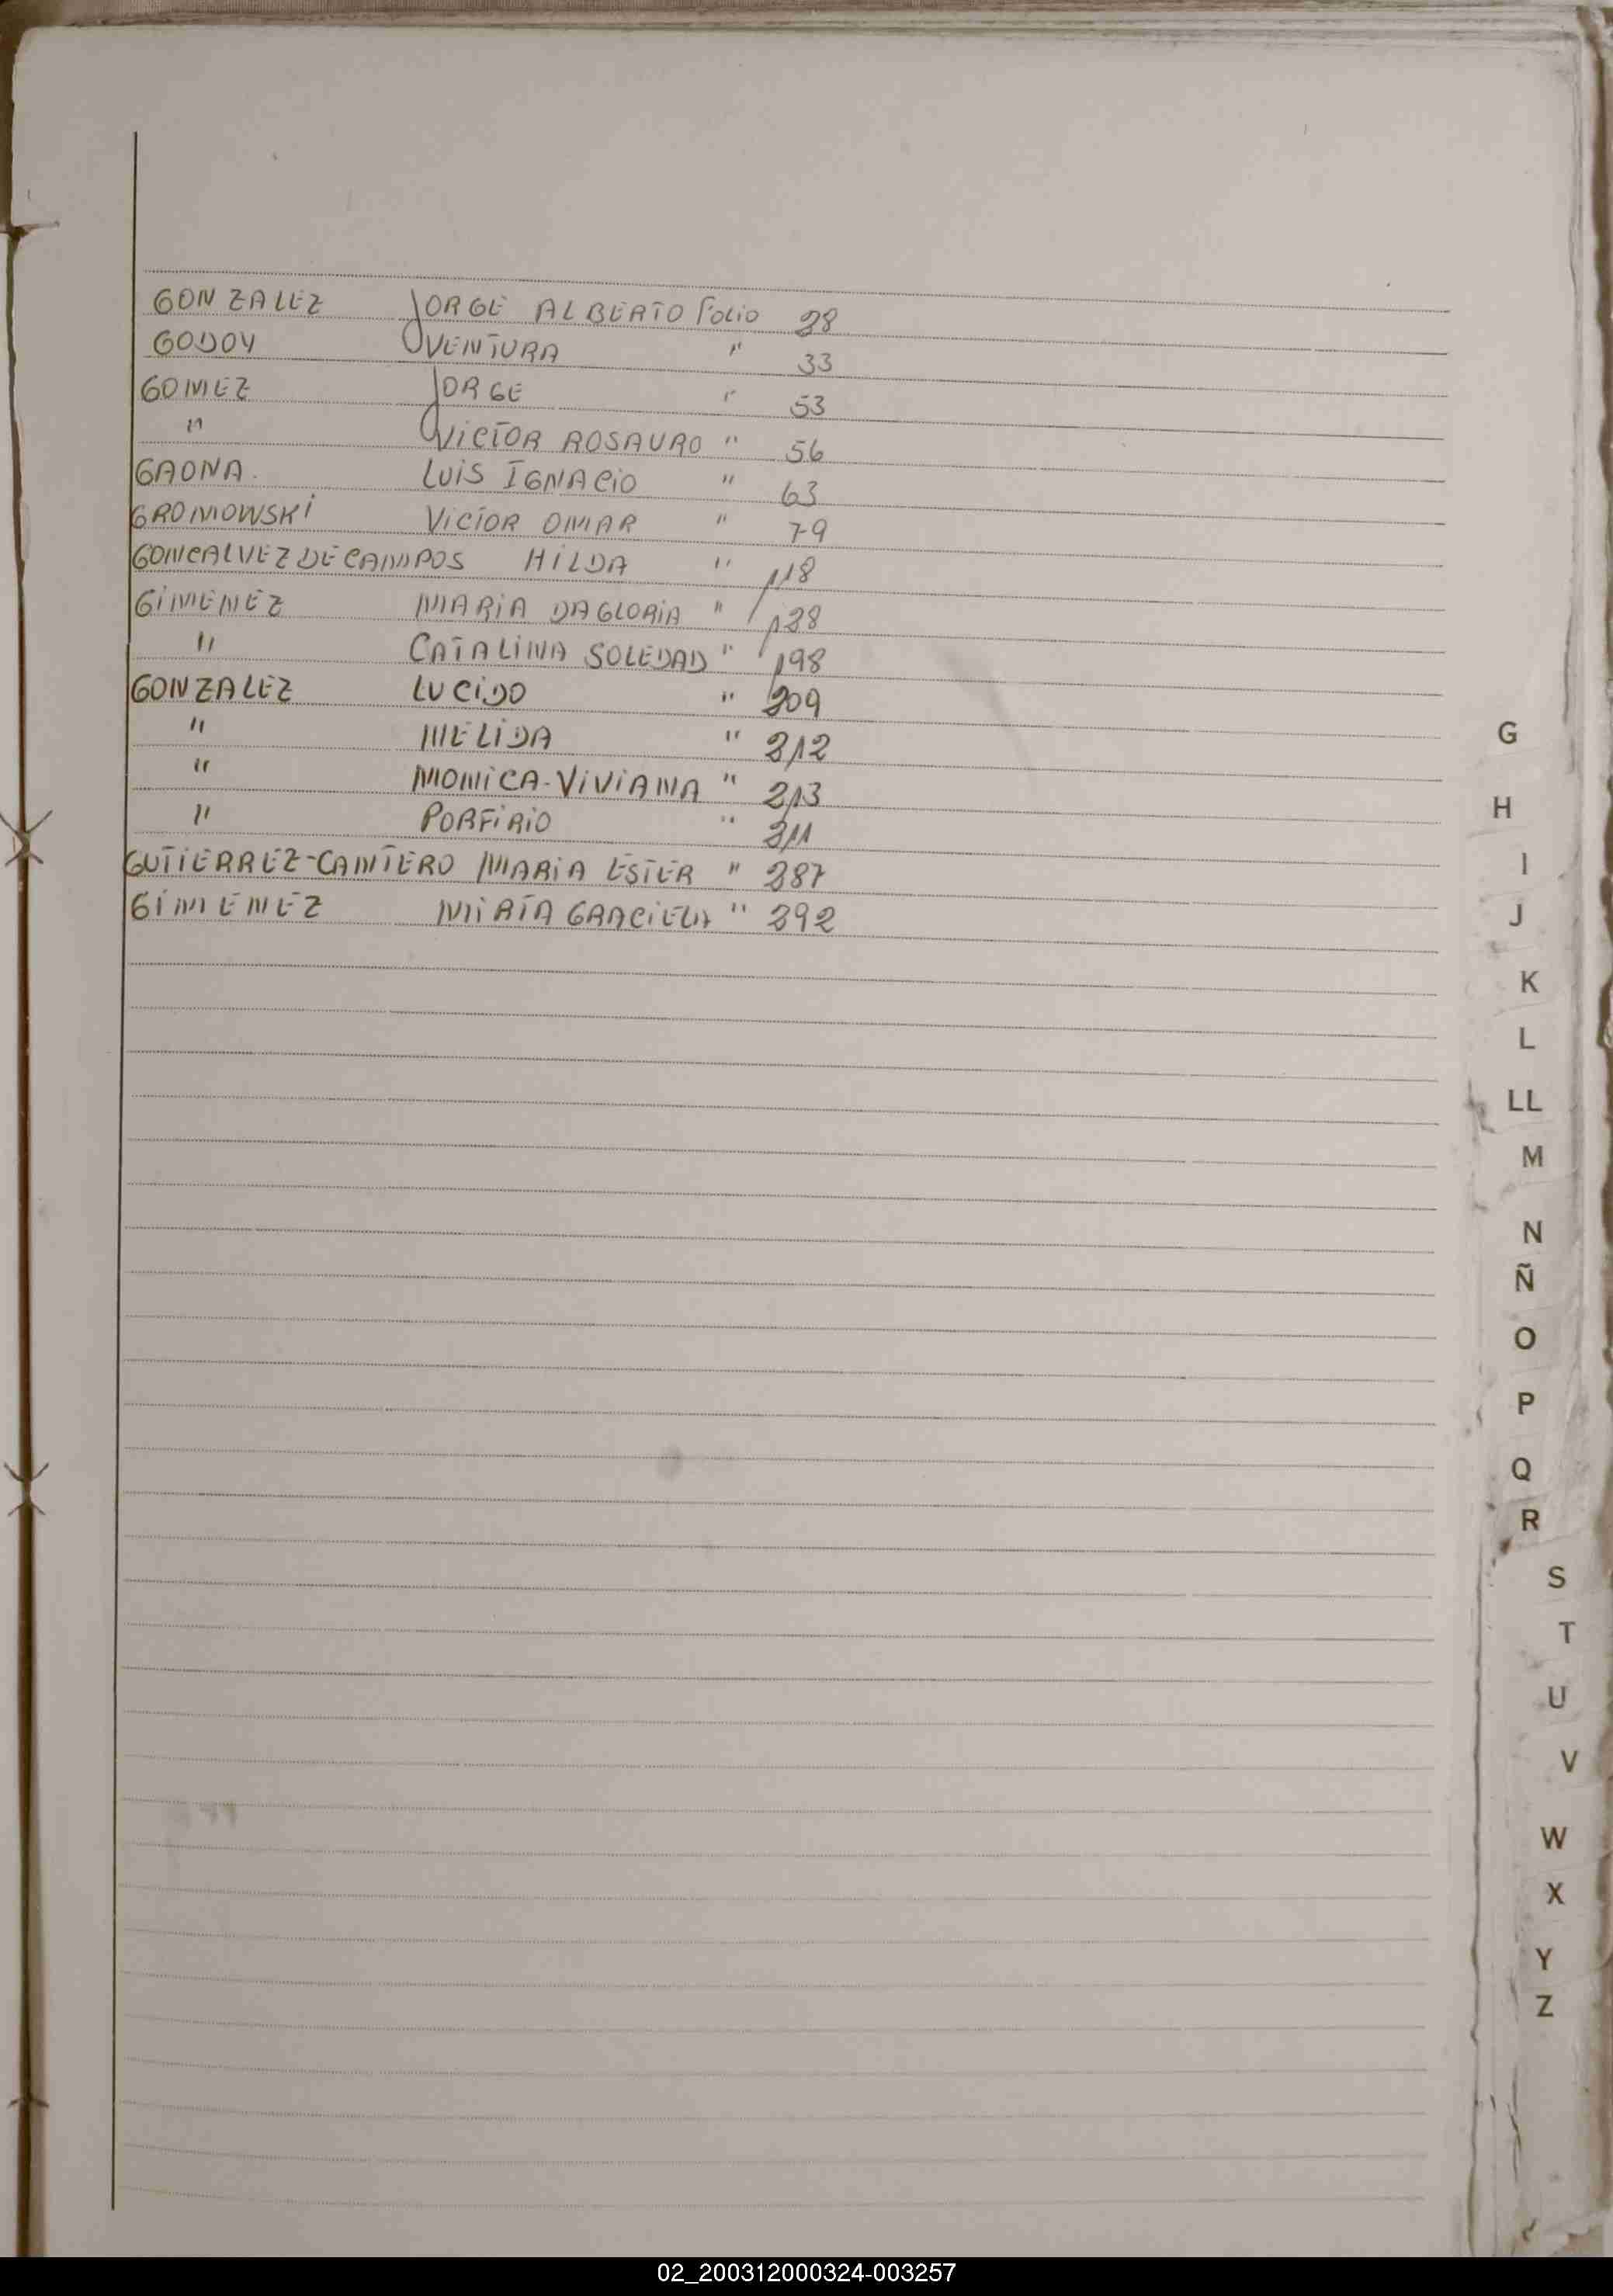 GONZALEZ JORGE ALBERTO Folio 28
GODOY VENTURA " 33
GOMEZ JORGE " 53
" VICTOR ROSAURO " 56
GAONA. LUIS IGNACIO " 63
GROMOWSKI VICTOR OMAR " 79
GONCALVEZ DE CAMPOS HILDA " 118
GIMENEZ MARIA DA GLORIA " 128
" CATALINA SOLEDAD " 198
GONZALEZ LUCIDO " 209
" MELIDA " 212
" MONICA-VIVIANA " 213
" PORFIRIO " 211
GUTIERREZ-CANTERO MARIA ESTER " 287
GIMENEZ MIRTA GRACIELA " 292
G
H
I
J
K
L
LL
M
N
Ñ
O
P
Q
R
S
T
U
V
W
X
Y
Z
02_200312000324-003257